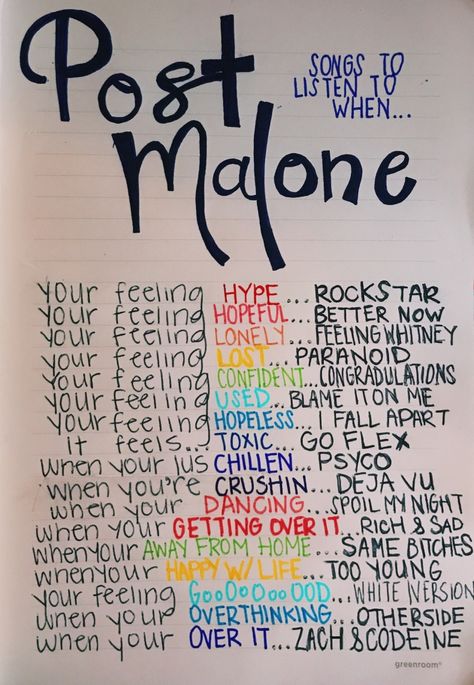 Post
Malone
SONGS TO
LISTEN TO
WHEN...
your feeling HYPE... ROCKSTAR
your feeling HOPEFUL... BETTER NOW
your feeling LONELY... FEELING WHITNEY
your feeling LOST... PARANOID
your feeling CONFIDENT... CONGRADULATIONS
your feeling USED... BLAME IT ON ME
your feeling HOPELESS... I FALL APART
it feels... TOXIC... GO FLEX
when your jus CHILLEN... PSYCO
when you're CRUSHIN... DEJA VU
when your DANCING... SPOIL MY NIGHT
when your GETTING OVER IT... RICH & SAD
when your AWAY FROM HOME... SAME BITCHES
when your HAPPY W/ LIFE... TOO YOUNG
your feeling GOOOOOOOOD... WHITE IVERSON
when your OVERTHINKING... OTHERSIDE
when your OVER IT... ZACH & CODEINE
greenroom®